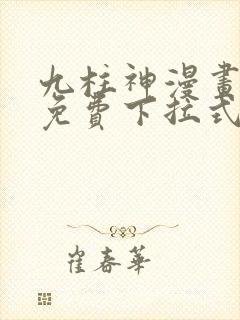 九柱神漫畫
免費下拉式
崔春華